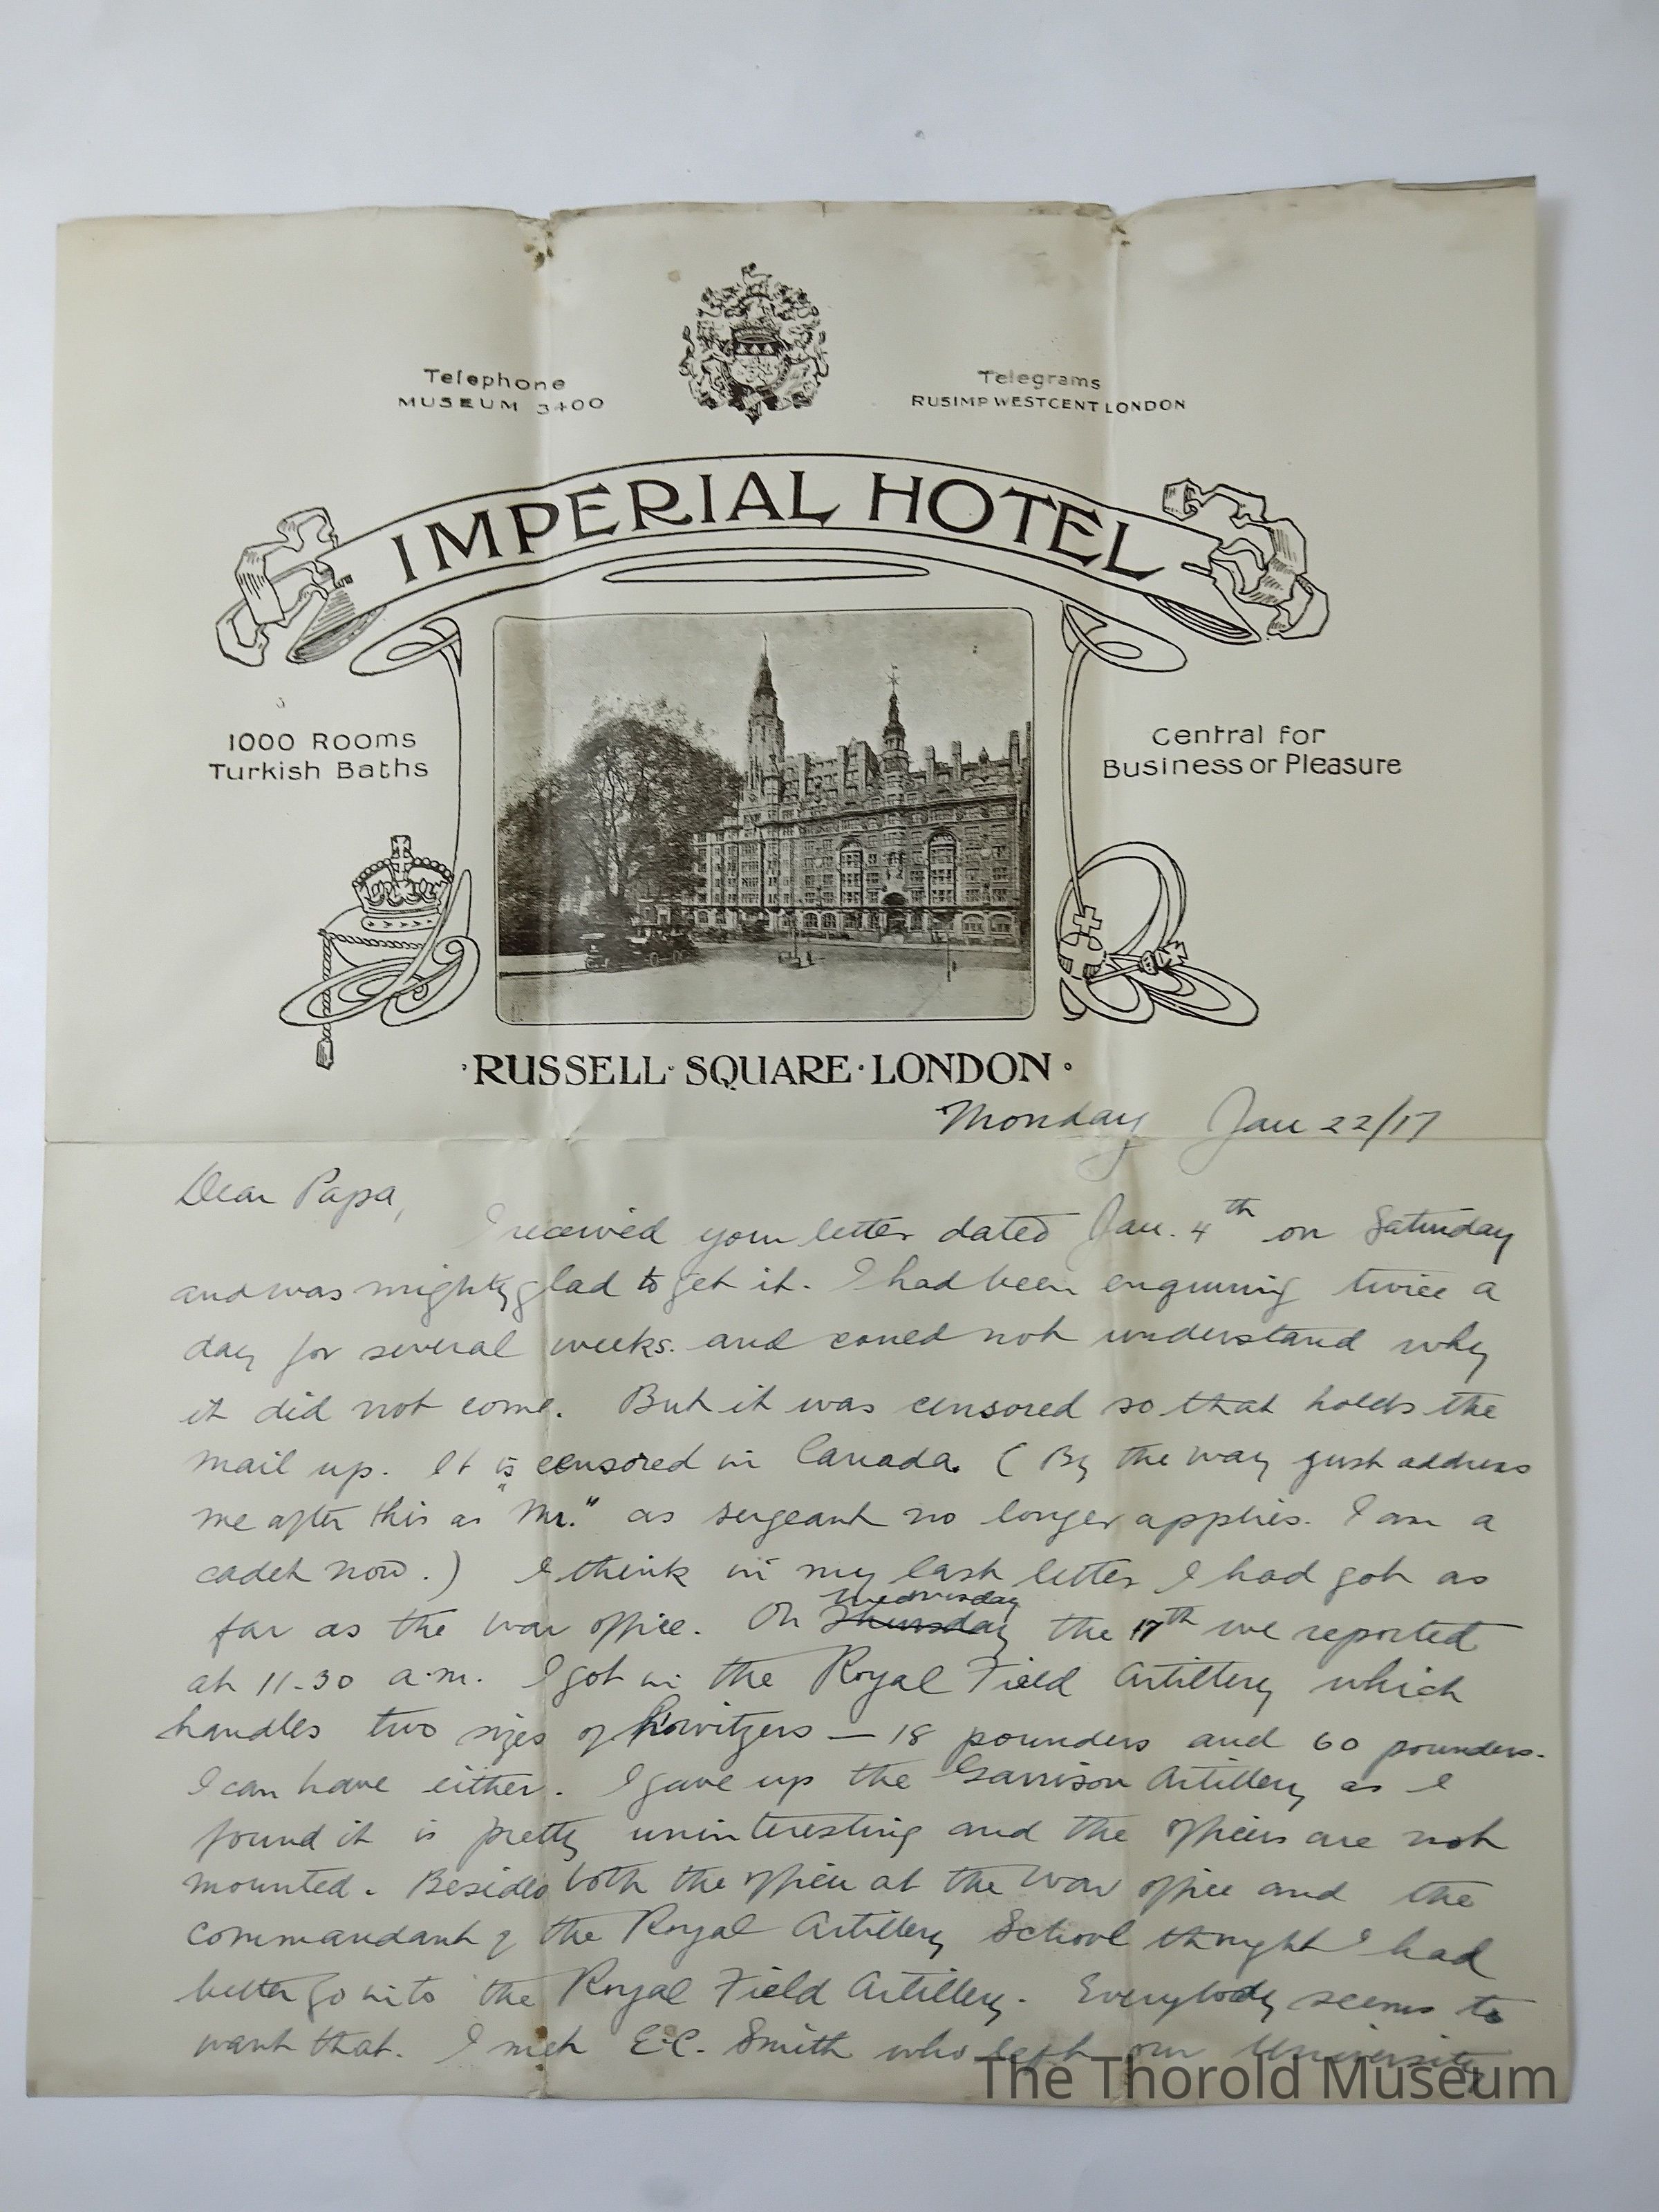 Telephone
MUSEUM 3400
Telegrams
RUSIMP WESTCENT LONDON
IMPERIAL HOTEL
1000 Rooms
Turkish Baths
Central for
Business or Pleasure
RUSSELL · SQUARE · LONDON
Monday Jan 22/17
Dear Papa,
I received your letter dated Jan. 4th on Saturday
and was mighty glad to get it. I had been enquiring twice a
day for several weeks. and could not understand why
it did not come. But it was censored so that holds the
mail up. It is censored in Canada. (By the way just address
me after this as "Mr." as sergeant no longer applies. I am a
cadet now.) I think in my last letter I had got as
far as the War office. On Thursday Wednesday the 17th we reported
at 11-30 a.m. I got in the Royal Field Artillery which
handles two sizes of howitzers — 18 pounders and 60 pounders.
I can have either. I gave up the Garrison Artillery as I
found it is pretty uninteresting and the officers are not
mounted. Besides both the officer at the War office and the
commandant of the Royal Artillery School thought I had
better go into the Royal Field Artillery. Everybody seems to
want that. I met E.C. Smith who left our University
The Thorold Museum